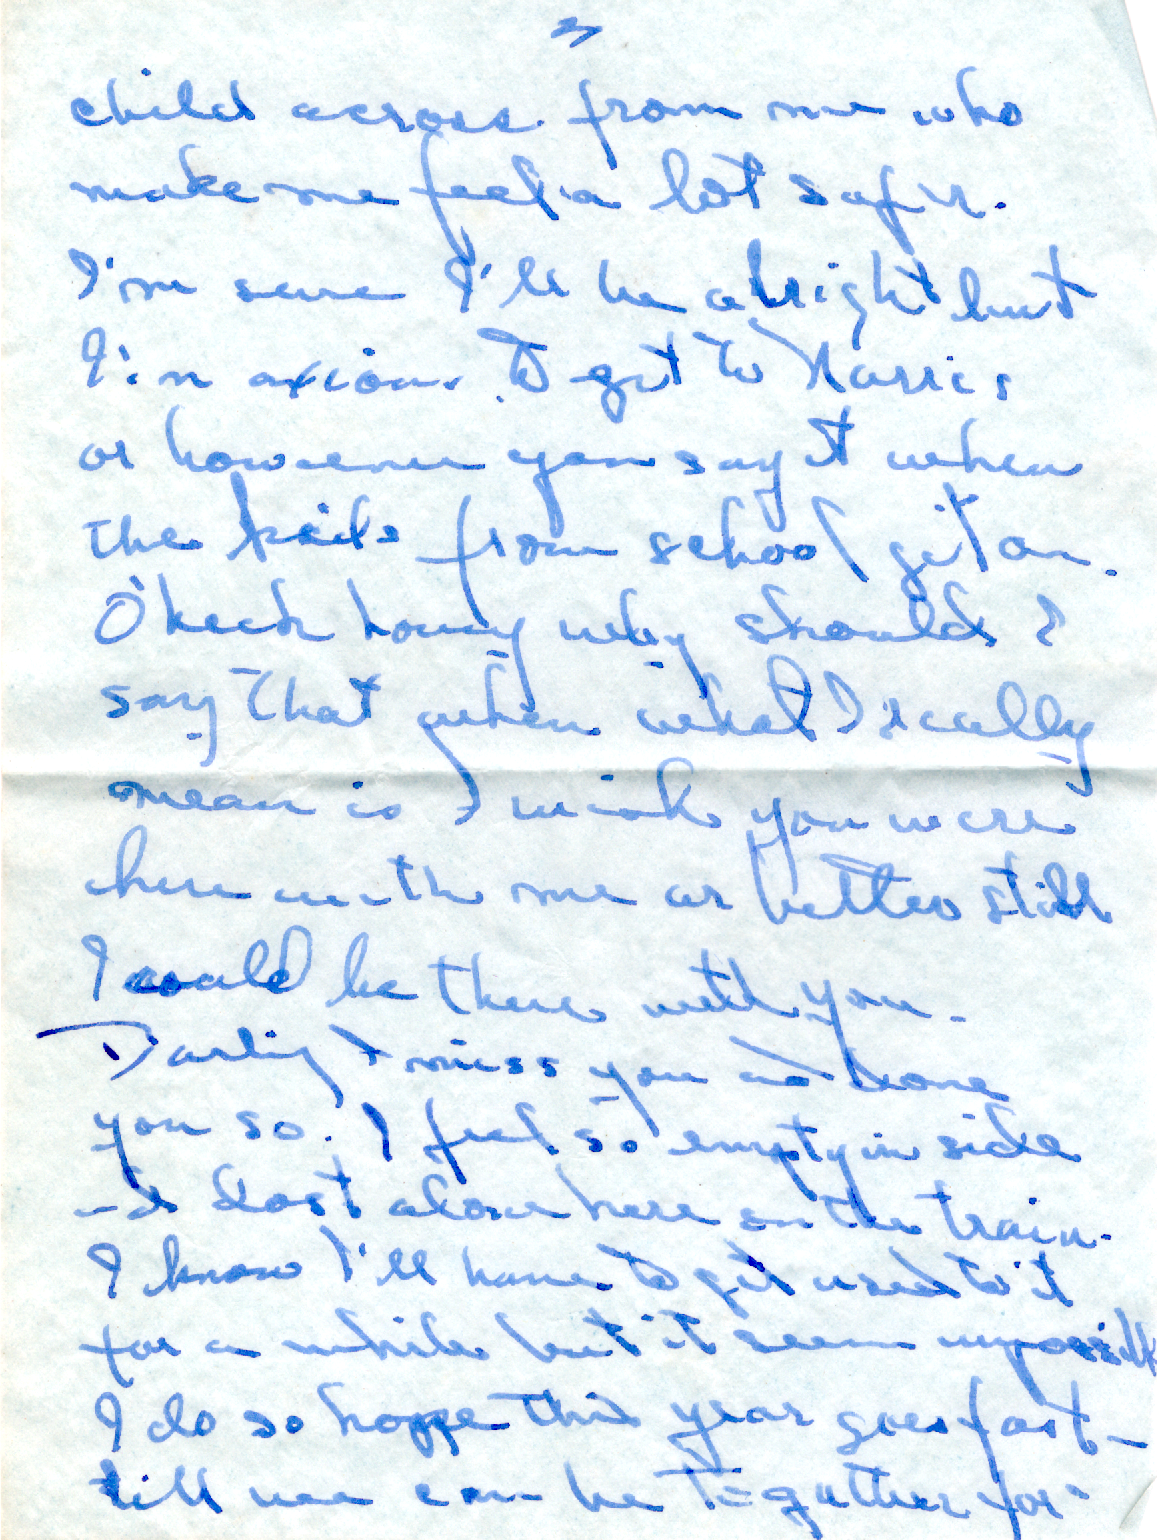 child across from me who
make me feel a lot safer.
I'm sure I'll be alright but
I'm axious to get to Harris
or however you say it when
the kids from school get on.
O'heck honey why should I
say that when what I really
mean is I wish you were
here with me or better still
I could be there with you.
Darling I miss you and love
you so. I feel so empty in side
and lost alone here on the train.
I know I'll have to get used to it
for a while but it seem impossible
I do so hope this year goes fast –
till we can be together for